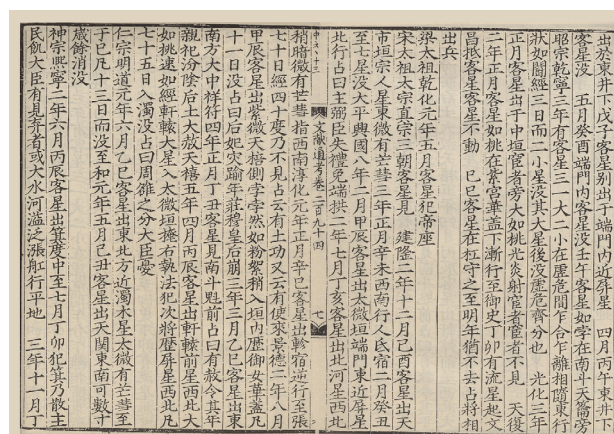 出於東井下戊子客星別出于端門內近屏星 四月丙午東井下
客星沒 五月癸酉端門內客星沒壬午客星如孛在南斗天籥旁
昭宗乾寧三年有客星三一大二小在虛危間乍合乍離相隨東行
狀如鬭經三日而二小星沒其大星後沒虛危齊分也 光化三年
正月客星出于中垣宦者旁大如桃光炎射宦者宦者不見 天復
二年正月客星如桃在紫宮華蓋下漸行至御史丁卯有流星起文
昌抵客星客星不動 己巳客星在杠守之至明年猶不去占將相
出兵
梁太祖乾化元年五月客星犯帝座
宋太祖太宗真宗三朝客星見 建隆二年十二月己酉客星出天
市垣宗人星東微有芒彗三年正月辛未西南行入氐宿二月癸丑
至七星沒太平興國八年二月甲辰客星出太微垣端門東近屏星
北行占曰主弼臣失禮免端拱二年七月丁亥客星出北河星西北
文獻通考卷二百九十四 七
稍暗微有芒彗指西南淳化元年正月辛巳客星出軫宿逆行至張
七十日經四十度乃不見占云有土功又云有使來景德二年八月
甲辰客星出紫微天棓側孛孛然如粉絮稍入垣內歷御女華蓋凡
十一日沒占曰后妃灾踰年莊穆皇后崩三年三月乙巳客星出東
南方大中祥符四年正月丁丑客星見南斗魁前占曰有赦今其年
親祀汾陰后土大赦天禧五年四月丙辰客星出軒轅前星西北大
如桃速如經軒轅大星入太微垣掩右執法犯次將歷屏星西北凡
七十五日入濁沒占曰周雒之分大臣憂
仁宗明道元年六月乙巳客星出東北方近濁木星太微有芒彗至
于已凡十三日而沒至和元年五月己丑客星出天關東南可數寸
歲餘消沒
神宗熙寧二年六月丙辰客星出箕度中至七月丁卯犯箕乃散主
民飢大臣有見弃者或大水河溢泛漲舡行平地 三年十一月丁